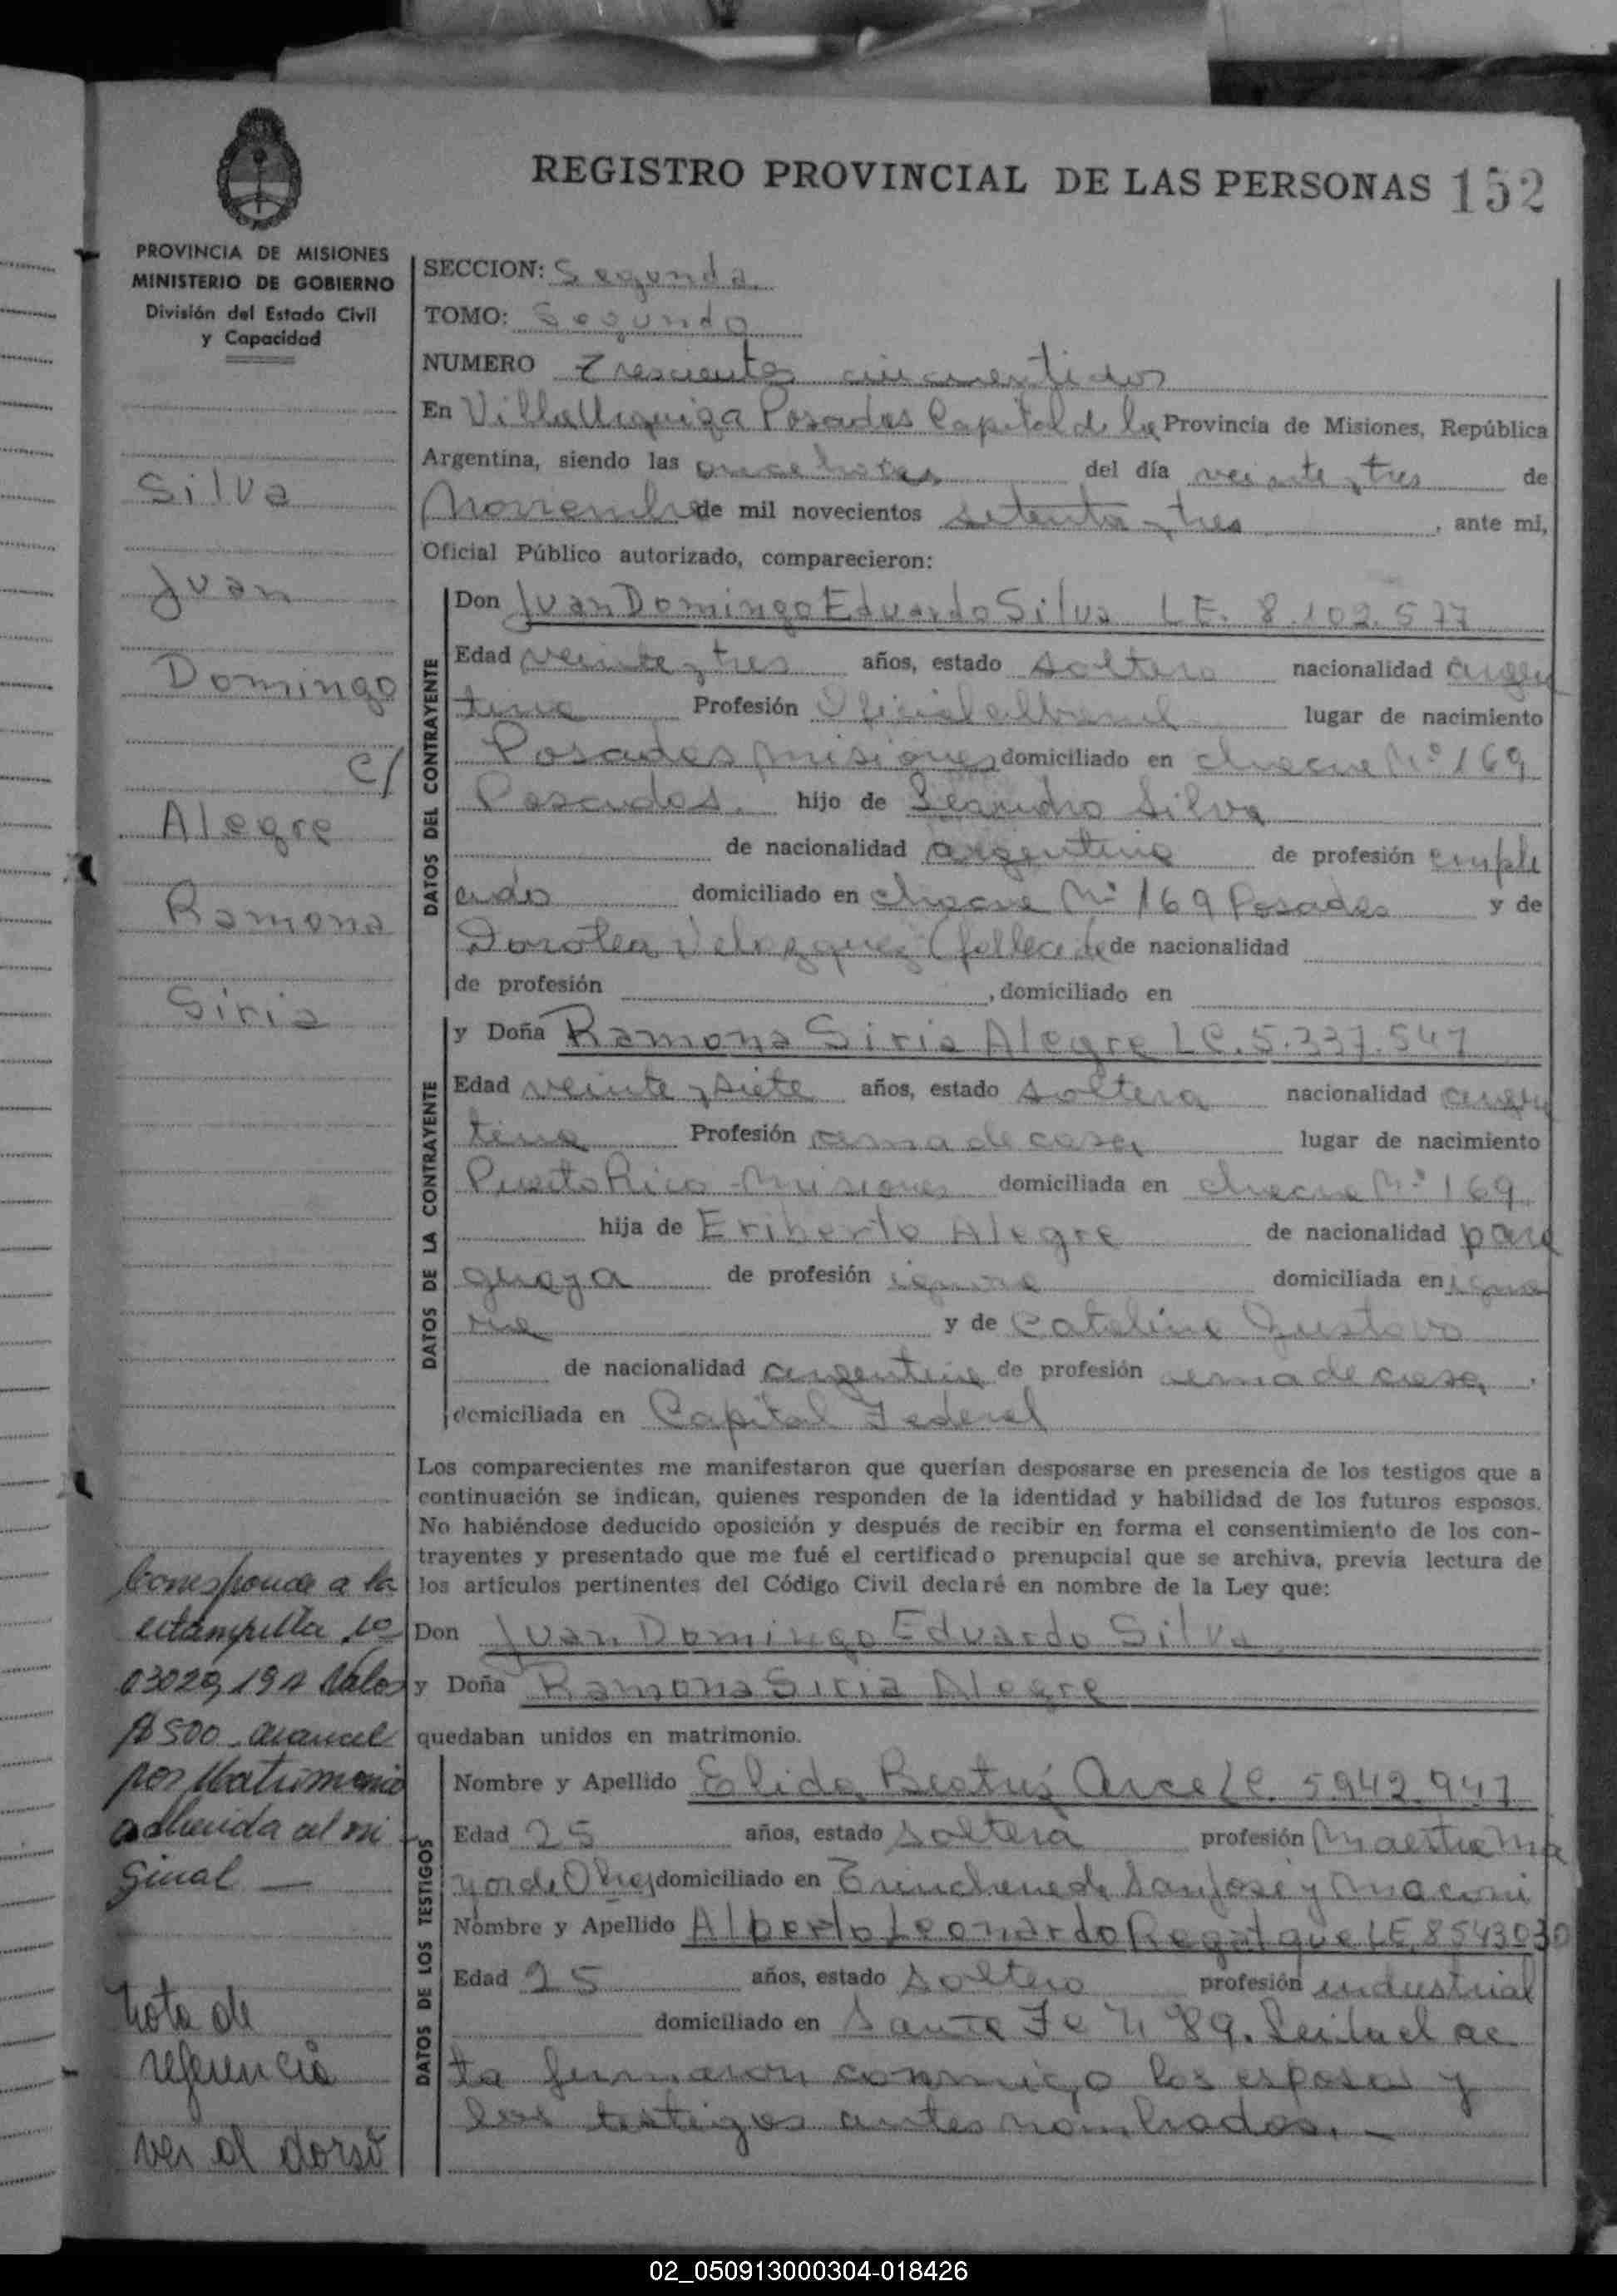 REGISTRO PROVINCIAL DE LAS PERSONAS 152
PROVINCIA DE MISIONES
MINISTERIO DE GOBIERNO
División del Estado Civil
y Capacidad
Silva
Juan
Domingo
c/
Alegre
Ramona
Siria
Corresponde a la
estampilla
por Matrimonio
Nota de
referencia
ver al dorso
SECCION: Segunda
TOMO: Segundo
NUMERO Trescientos cincuentidos
En Villa Urquiza Posadas Capital de la Provincia de Misiones, República
Argentina, siendo las once horas del día veinte y tres de
Noviembre de mil novecientos setenta y tres, ante mi,
Oficial Público autorizado, comparecieron:
DATOS DEL CONTRAYENTE
Don Juan Domingo Eduardo Silva LE. 8.102.577
Edad veinte y tres años, estado soltero nacionalidad argen
tina Profesión Oficial albanil lugar de nacimiento
Posadas Misiones domiciliado en chacra Nº 169
Posadas. hijo de Leandro Silva
de nacionalidad argentina de profesión emple
ado domiciliado en chacra Nº 169 Posadas y de
Dorotea Velazquez (fallecida de nacionalidad
de profesión , domiciliado en
DATOS DE LA CONTRAYENTE
y Doña Ramona Siria Alegre LC. 5.337.547
Edad veinte y siete años, estado soltera nacionalidad argen
tina Profesión ama de casa lugar de nacimiento
Puerto Rico - Misiones domiciliada en chacra Nº 169
hija de Eriberto Alegre de nacionalidad para
guaya de profesión ignora domiciliada en igno
ra y de Catalina Gustavo
de nacionalidad argentina de profesión ama de casa.
domiciliada en Capital Federal
Los comparecientes me manifestaron que querían desposarse en presencia de los testigos que a
continuación se indican, quienes responden de la identidad y habilidad de los futuros esposos.
No habiéndose deducido oposición y después de recibir en forma el consentimiento de los con-
trayentes y presentado que me fué el certificado prenupcial que se archiva, previa lectura de
los artículos pertinentes del Código Civil declaré en nombre de la Ley que:
Don Juan Domingo Eduardo Silva
y Doña Ramona Siria Alegre
quedaban unidos en matrimonio.
DATOS DE LOS TESTIGOS
Nombre y Apellido Elida Beatriz Arce LC. 5.942.947
Edad 25 años, estado soltera profesión Maestra Ma
domiciliado en San José y
Nombre y Apellido Alberto Leonardo LE 8543030
Edad 25 años, estado soltero profesión industrial
domiciliado en Santa Fe Leida el ac
ta firmaron conmigo los esposos y
los testigos antes nombrados. -
02_050913000304-018426